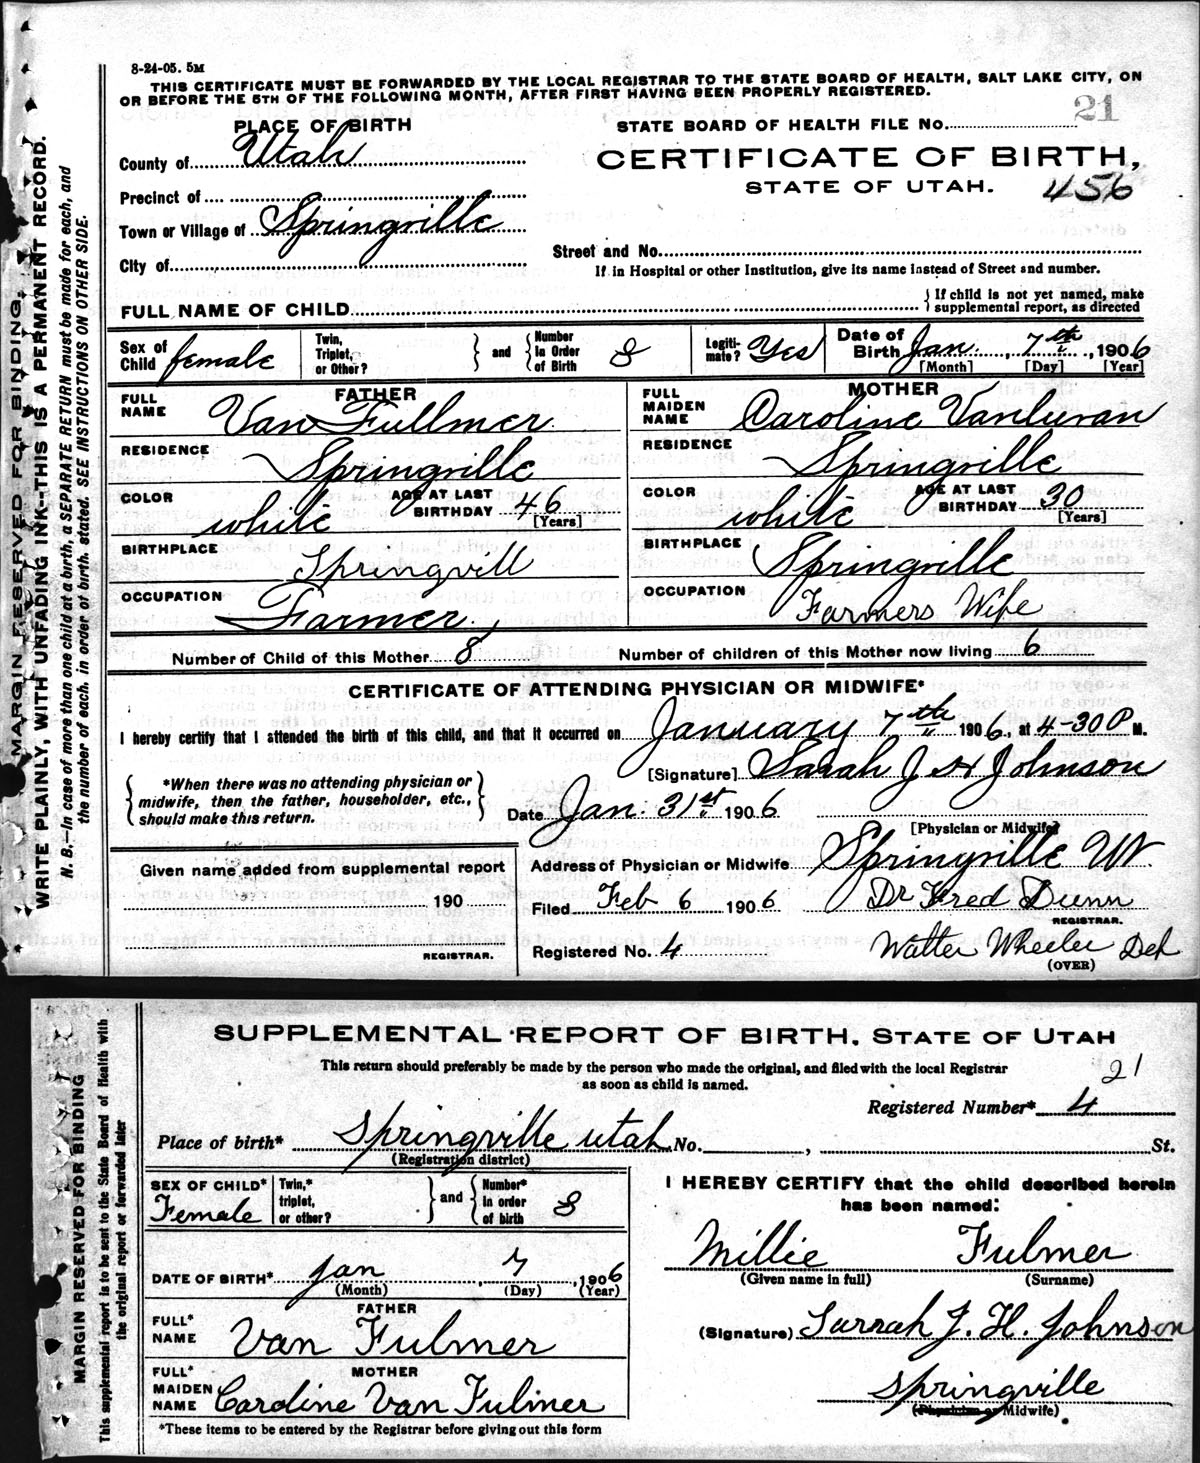 8-24-05. 5M
THIS CERTIFICATE MUST BE FORWARDED BY THE LOCAL REGISTRAR TO THE STATE BOARD OF HEALTH, SALT LAKE CITY, ON
OR BEFORE THE 5TH OF THE FOLLOWING MONTH, AFTER FIRST HAVING BEEN PROPERLY REGISTERED.
21
PLACE OF BIRTH
STATE BOARD OF HEALTH FILE No.
County of Utah
CERTIFICATE OF BIRTH,
STATE OF UTAH. 456
Precinct of
Town or Village of Springville
Street and No.
City of
If in Hospital or other Institution, give its name instead of Street and number.
FULL NAME OF CHILD
If child is not yet named, make
supplemental report, as directed
Sex of Child female
Twin, Triplet, or Other?
and
Number in Order of Birth 8
Legiti-mate? Yes
Date of Birth Jan. 7th, 1906
[Month] [Day] [Year]
FATHER
FULL NAME Van Fullmer
RESIDENCE Springville
COLOR white
AGE AT LAST BIRTHDAY 46
[Years]
BIRTHPLACE Springvill
OCCUPATION Farmer.
MOTHER
FULL MAIDEN NAME Caroline Vanluvan
RESIDENCE Springville
COLOR white
AGE AT LAST BIRTHDAY 30
[Years]
BIRTHPLACE Springville
OCCUPATION Farmers Wife
Number of Child of this Mother 8
Number of children of this Mother now living 6
CERTIFICATE OF ATTENDING PHYSICIAN OR MIDWIFE*
I hereby certify that I attended the birth of this child, and that it occurred on January 7th 1906, at 4-30 P M.
[Signature] Sarah J H Johnson
*When there was no attending physician or
midwife, then the father, householder, etc.,
should make this return.
Date Jan. 31st 1906
[Physician or Midwife]
Given name added from supplemental report
190
REGISTRAR.
Address of Physician or Midwife Springville Ut.
Filed Feb 6 1906
Dr Fred Dunn
REGISTRAR.
Registered No. 4
Walter Wheeler Dep
(OVER)
MARGIN RESERVED FOR BINDING.
WRITE PLAINLY, WITH UNFADING INK--THIS IS A PERMANENT RECORD.
N. B.--In case of more than one child at a birth, a SEPARATE RETURN must be made for each, and
the number of each, in order of birth, stated. SEE INSTRUCTIONS ON OTHER SIDE.
SUPPLEMENTAL REPORT OF BIRTH, STATE OF UTAH
This return should preferably be made by the person who made the original, and filed with the local Registrar
as soon as child is named.
21
Registered Number* 4
Place of birth* Springville utah No. , St.
(Registration district)
SEX OF CHILD* Female
Twin,* triplet, or other?
and
Number* in order of birth 8
DATE OF BIRTH* Jan 7, 1906
(Month) (Day) (Year)
FATHER
FULL* NAME Van Fulmer
MOTHER
FULL* MAIDEN NAME Caroline Van Fulmer
*These items to be entered by the Registrar before giving out this form
I HEREBY CERTIFY that the child described herein
has been named:
Millie Fulmer
(Given name in full) (Surname)
(Signature) Sarrah J. H. Johnson
Springville
(Physician or Midwife).
MARGIN RESERVED FOR BINDING
This supplemental report is to be sent to the State Board of Health with
the original report or forwarded later